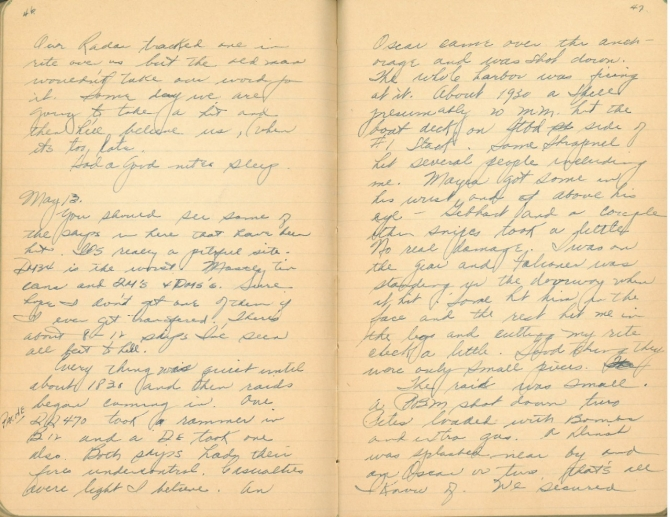 46
Our Radar tracked one in
rite over us but the old man
wouldn't take our word for
it. Some day we are
going to take a hit and
then he'll believe us, when
its too late.
Had a good nites sleep.
May 13.
You should see some of
the ships in here that have been
hit. It's really a pitiful site.
is the worst. Mostly tin
cans and & DMS's. Sure
hope I don't get one of them if
I ever get transfered. There's
about 8 - 12 ships I've seen
all to hell.
Every thing was quiet until
about 1830 and then raids
began coming in. One
DD 470 took a rammer in
and a DE took one
also. Both ships had their
fires undercontrol. Casualties
were light I believe. An
47
Oscar came over the anch-
orage and was shot down.
The whole harbor was firing
at it. About 1930 a
presumably 20 M.M. hit the
boat deck on side of
F'1 Stack. Some Shrapnel
hit several people including
me. got some in
his wrist and above his
eye - and a couple
other snipes took a little.
No real damage. I was on
the and Falconer was
standing in the doorway when
it hit. Some hit him in the
face and the rest hit me in
the legs and cutting my rite
cheek a little. Good thing they
were only small pieces.
The raid was small.
A PBM shot down two
Petes loaded with Bombs
and extra gas. A
was splashed near by and
an Oscar or two. that's all
I know of. We secured